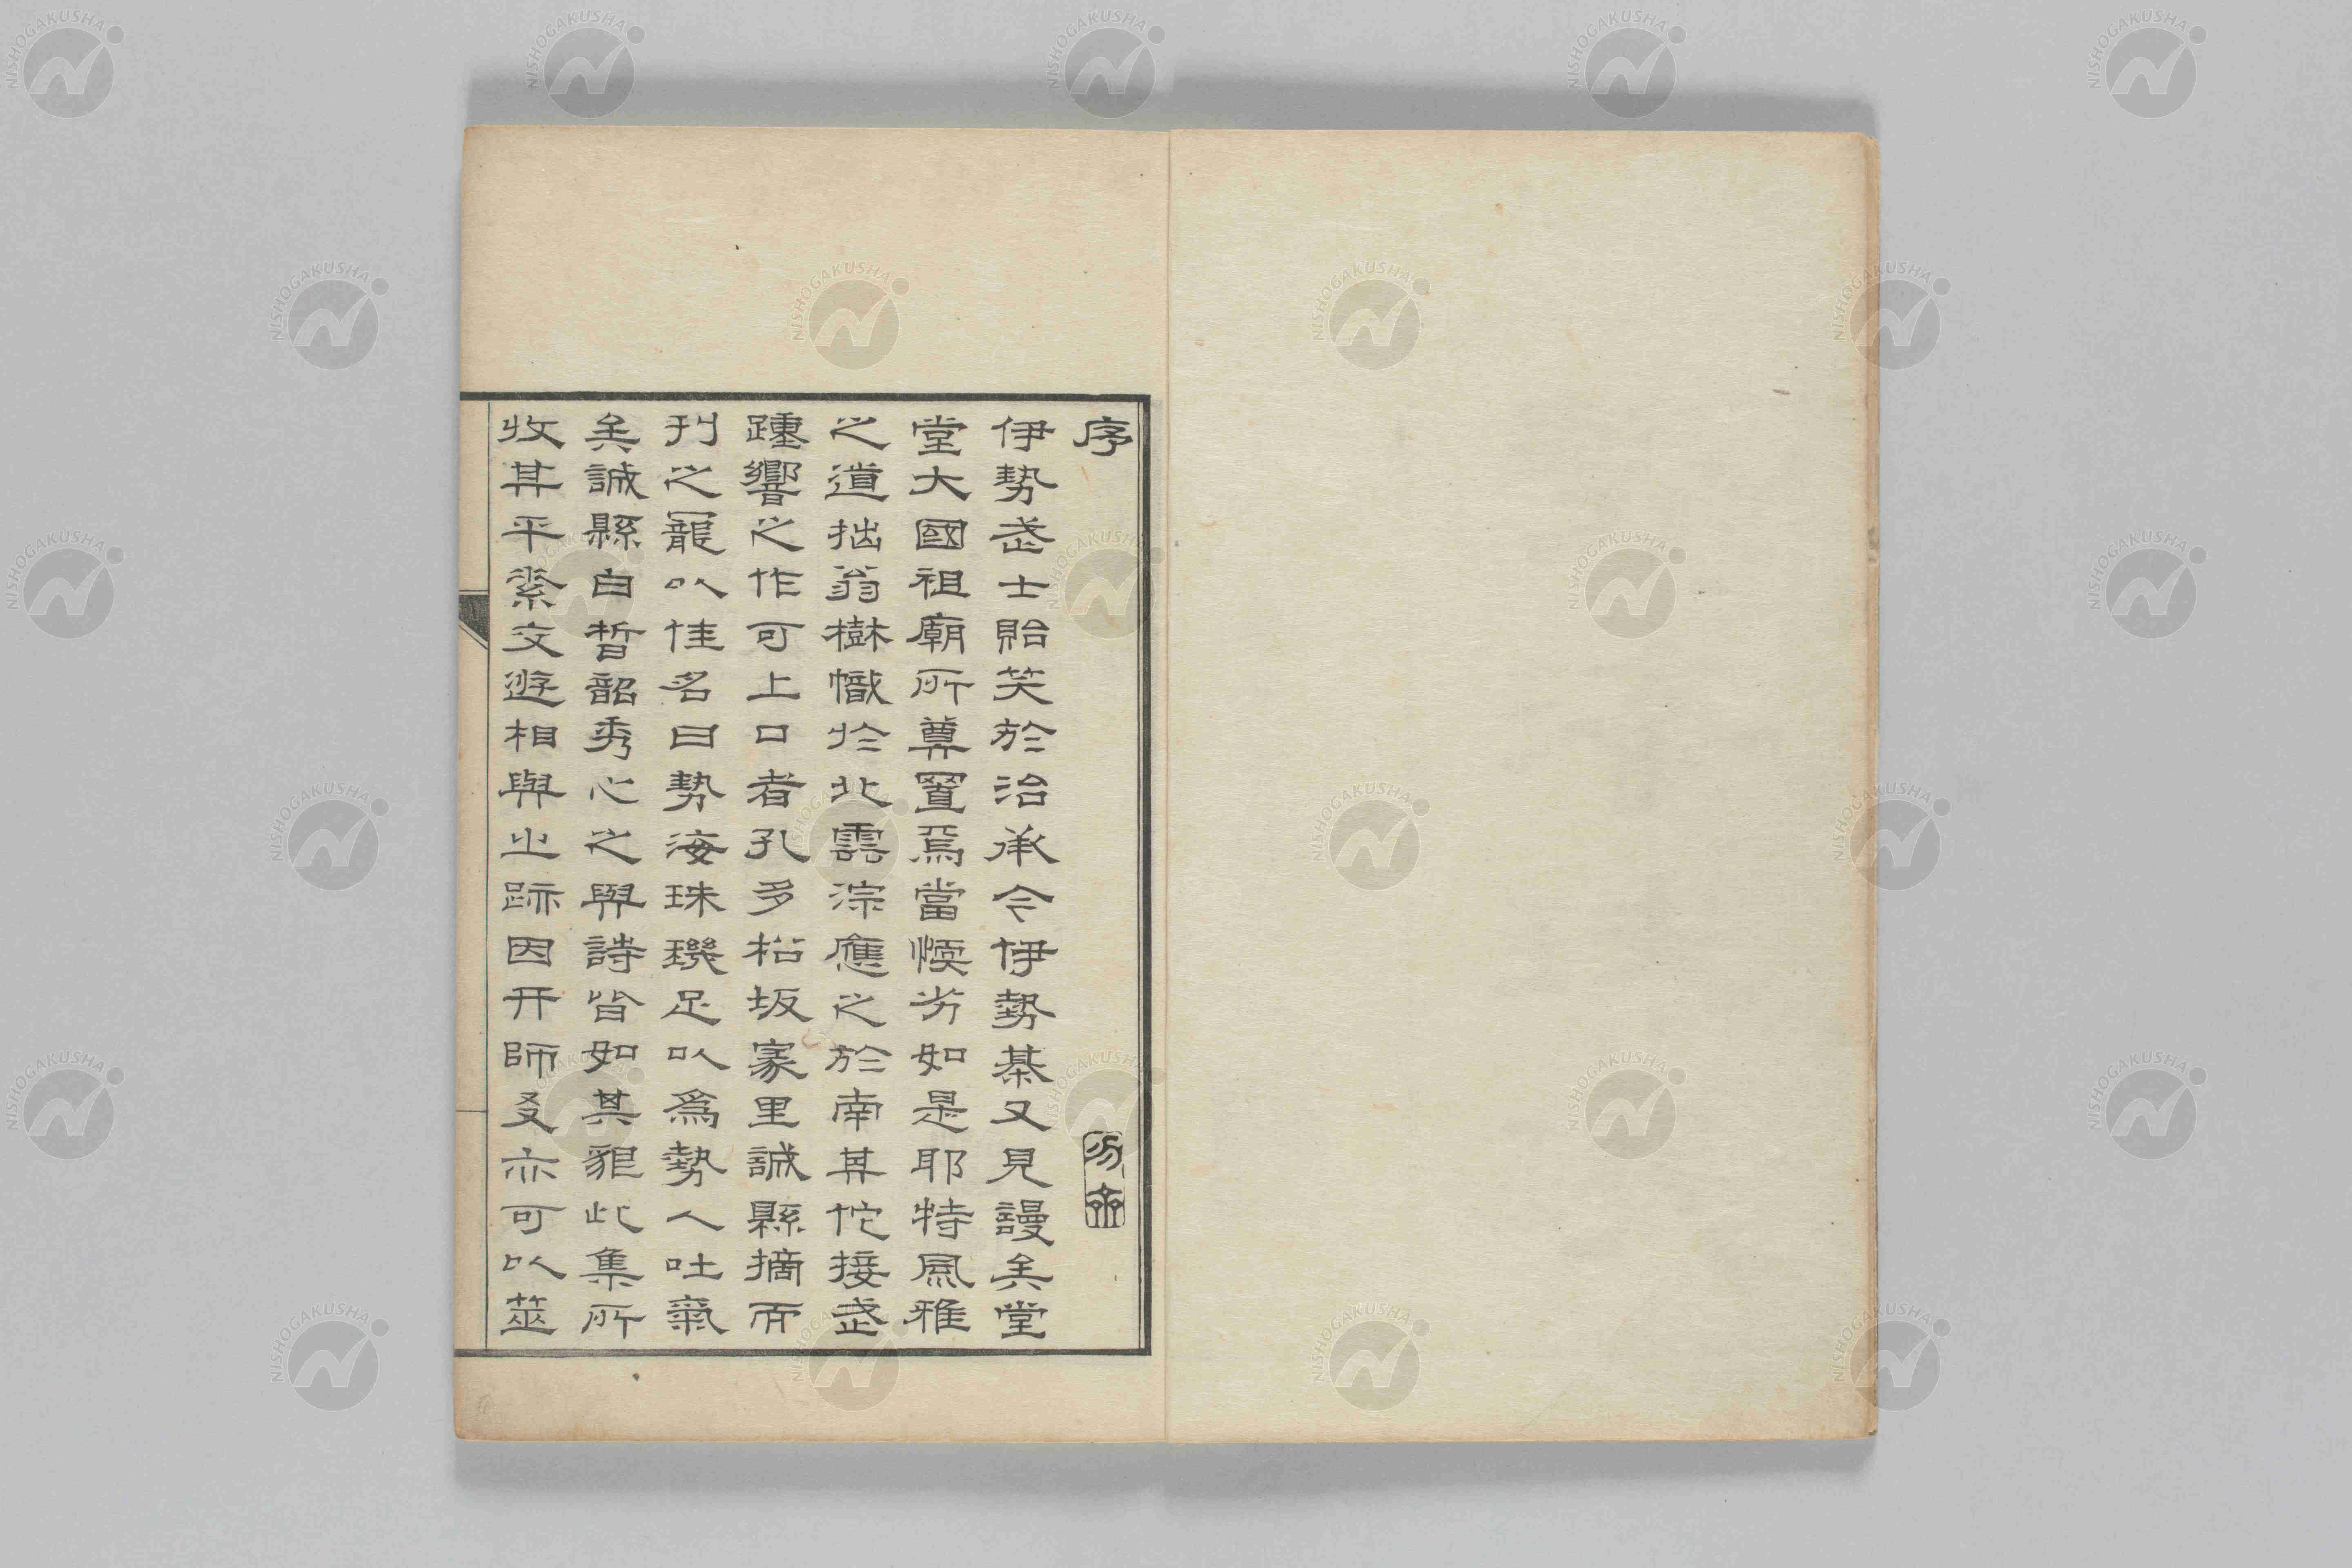 序
伊勢武士貽笑於治承今伊勢棊又見謾矣堂
堂大國祖廟所尊置焉當愞劣如是耶特風雅
之道拙翁樹幟於北雲淙應之於南其佗接武
踵響之作可上口者孔多松坂家里誠縣摘而
刊之寵以佳名曰勢海珠璣足以為勢人吐氣
矣誠縣白皙韶秀心之與詩皆如其貌此集所
收其平素交遊相與之跡因幵師叜亦可以筮
NISHOGAKUSHA